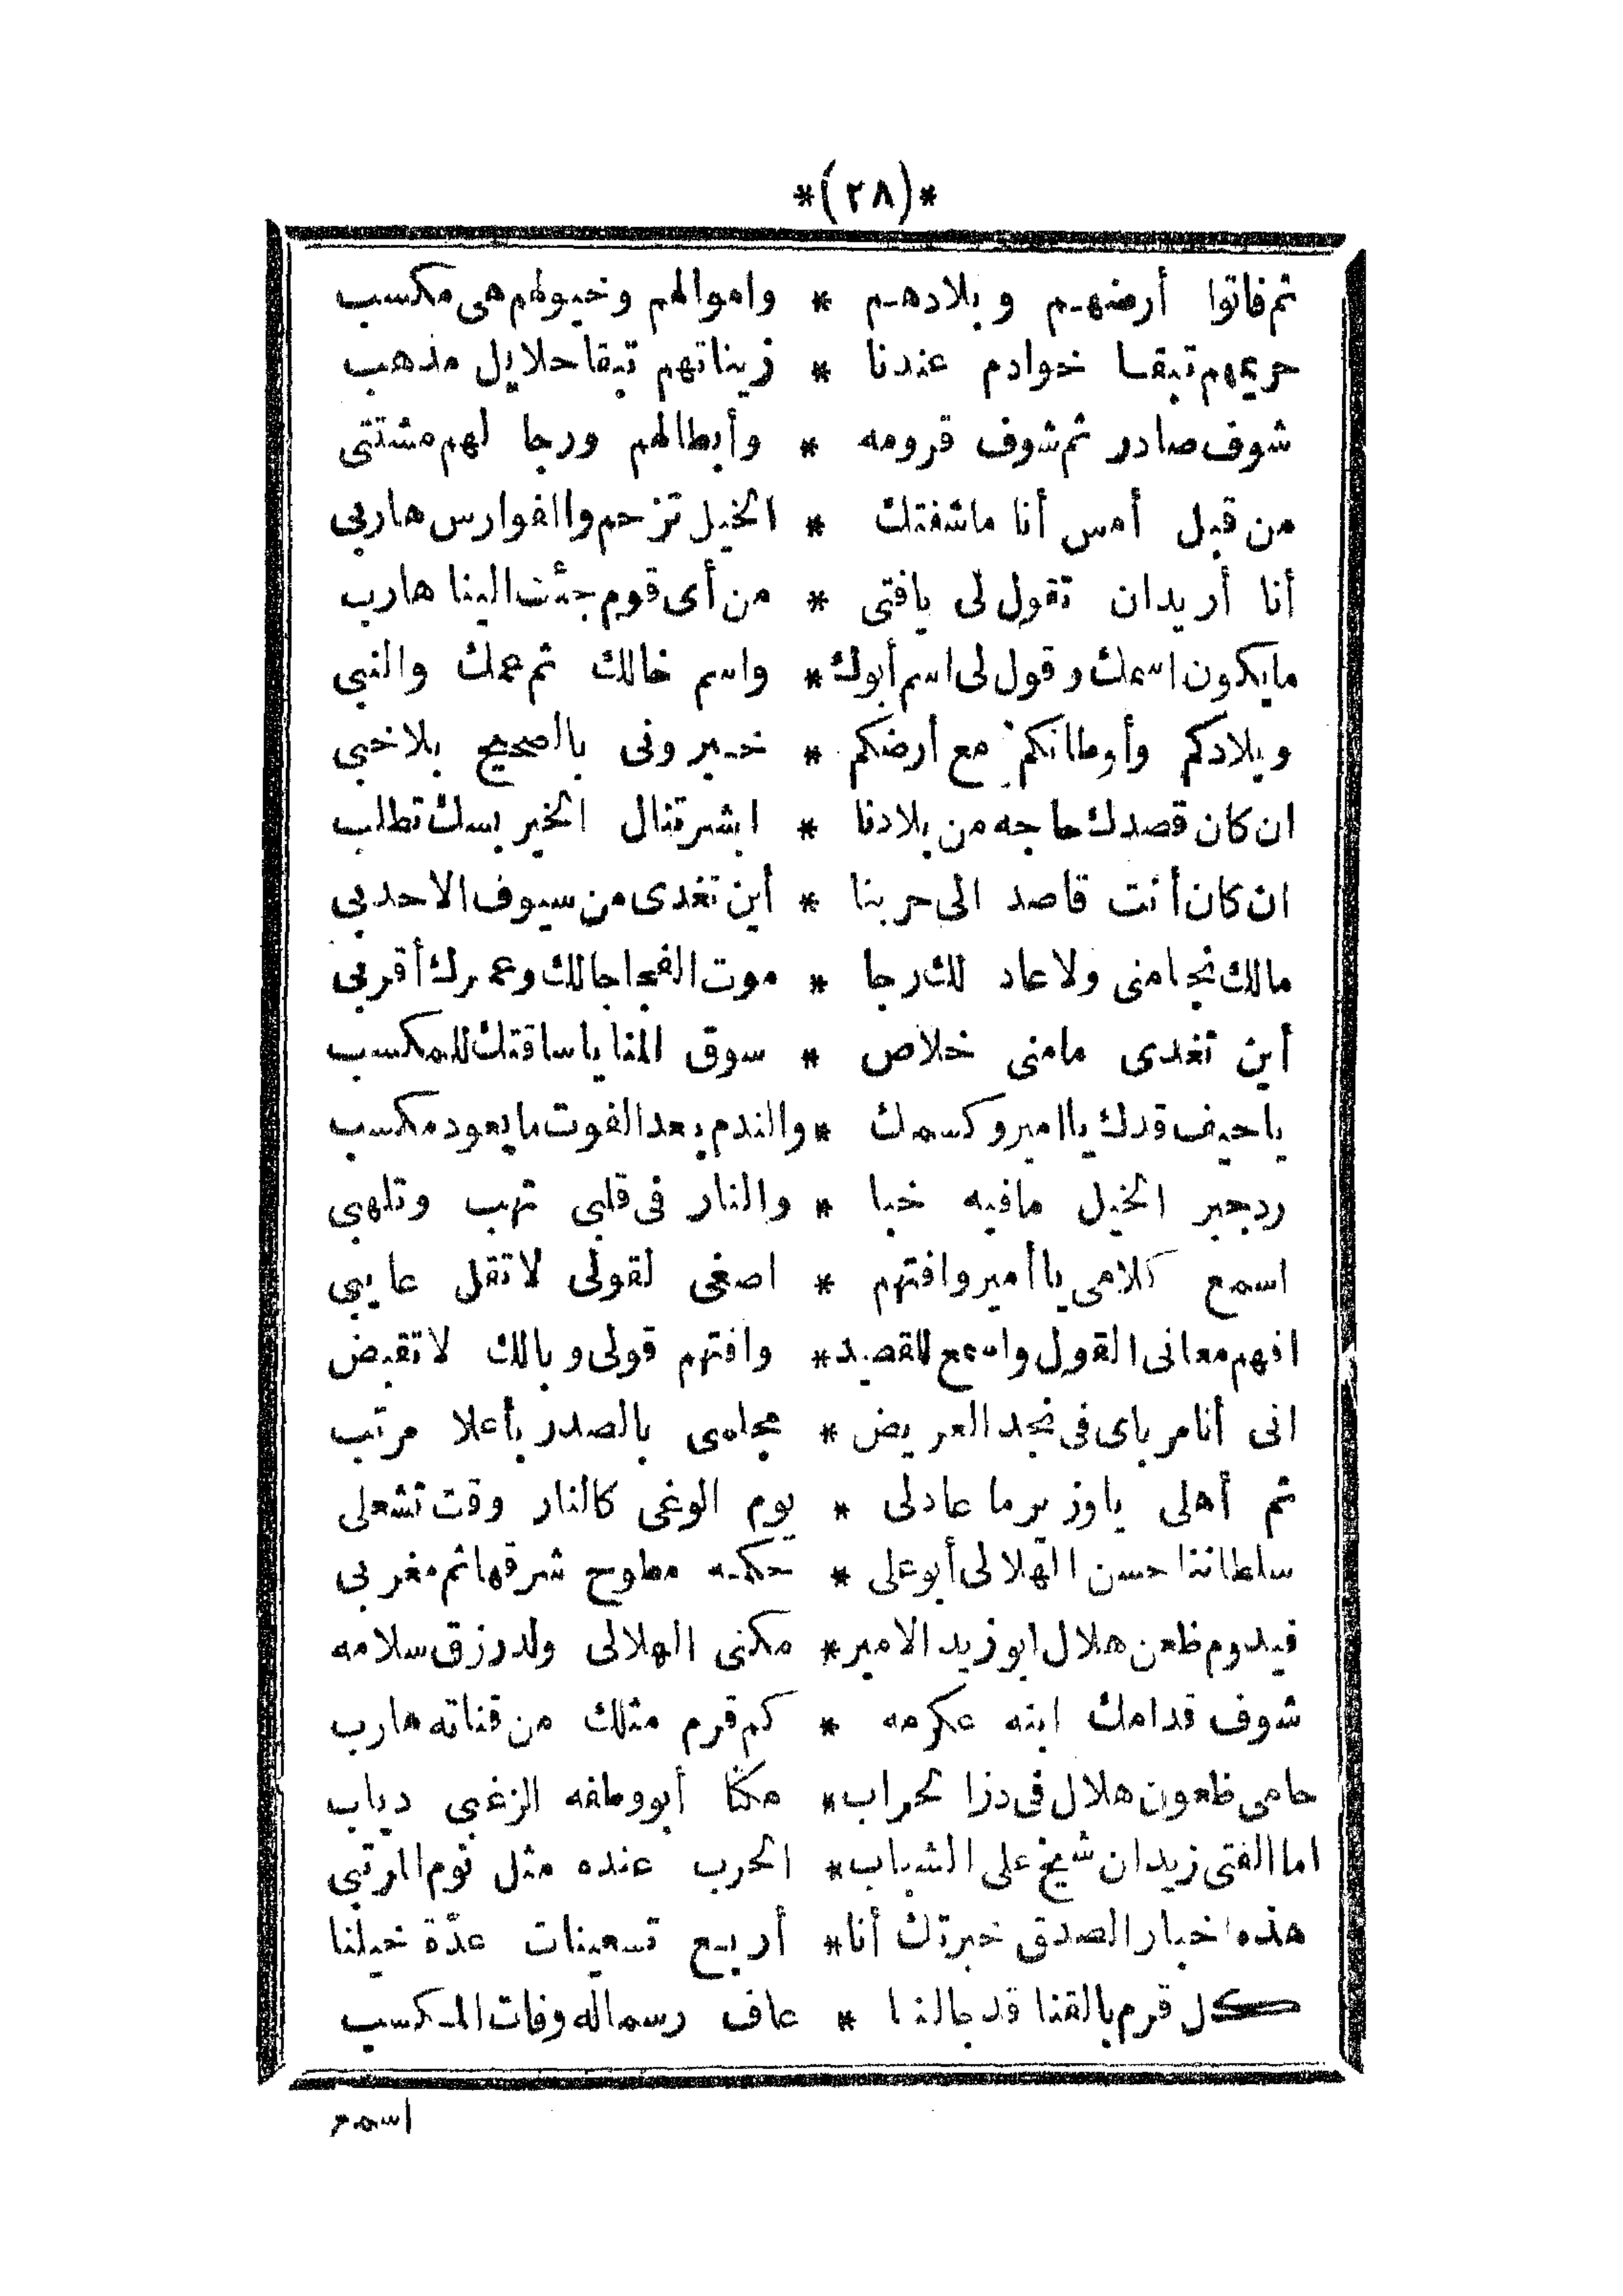 *(٢٨)*
ثم فاتوا أرضهم وبلادهم * واموالهم وخيولهم هى مكسب
حريمهم تبقا خوادم عندنا * زيناتهم تبقا حلايل مذهب
شوف صادر ثم شوف قرومه * وأبطالهم ورجا لهم مشتتى
من قبل أمس أنا ماشفتك * الخيل تزحم والفوارس هاربى
أنا أريدان تقول لى يافتى * من أى قوم جئت الينا هارب
مايكون اسمك وقول لى اسم أبوك * واسم خالك ثم عمك والنبى
وبلادكم وأوطانكم مع أرضكم * خبرونى بالصحيح بلاخبى
ان كان قصدك حاجه من بلادنا * ابشر تنال الخير بسك تطلب
ان كان أنت قاصد الى حربنا * أين تغدى من سيوف الاحدبى
مالك نجامنى ولا عاد لك رجا * موت الفجا جالك وعمرك أقربى
أين تغدى مامنى خلاص * سوق المنايا ساقتك للمكسب
ياحيف قدك ياامير وكسمك * والندم بعد الفوت مايعود مكسب
ردجبر الخيل مافيه خبا * والنار فى قلبى تهب وتلهبى
اسمع كلامى ياأمير وافتهم * اصغى لقولى لاتقل عايبى
افهم معانى القول واسمع للقصيد * وافتهم قولى وبالك لاتقبض
انى أنامرباى فى نجد العريض * مجلسى بالصدر بأعلا مرتب
ثم أهلى ياوزير ما عادلى * يوم الوغى كالنار وقت تشعلى
سلطاننا حسن الهلالى أبوعلى * حكمه مطوح شرقها ثم مغربى
فيدوم ظعن هلال ابوزيد الامير * مكنى الهلالى ولد رزق سلامه
شوف قدامك ابنه عكرمه * كم قرم مثلك من قناته هارب
حامى ظعون هلال فى دزا لحراب * مكنا أبووطفه الزغبى دياب
اما الفتى زيدان شيخ على الشباب * الحرب عنده مثل نوم المرتبى
هذه اخبار الصدق خبرتك أنا * أربع تسعينات عدّة خيلنا
كل قرم بالقنا قد جالنا * عاف رسماله وفات المكسب
اسمع